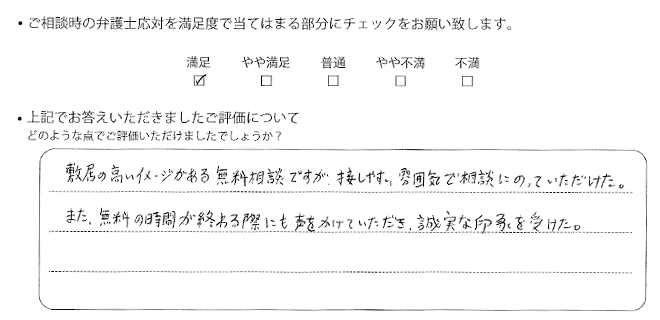 ・ご相談時の弁護士応対を満足度で当てはまる部分にチェックをお願い致します。
満足 やや満足 普通 やや不満 不満
☑ □ □ □ □
・上記でお答えいただきましたご評価について
どのような点でご評価いただけましたでしょうか？
敷居の高いイメージがある無料相談ですが、接しやすい雰囲気で相談にのっていただけた。
また、無料の時間が終わる際にも声をかけていただき、誠実な印象を受けた。